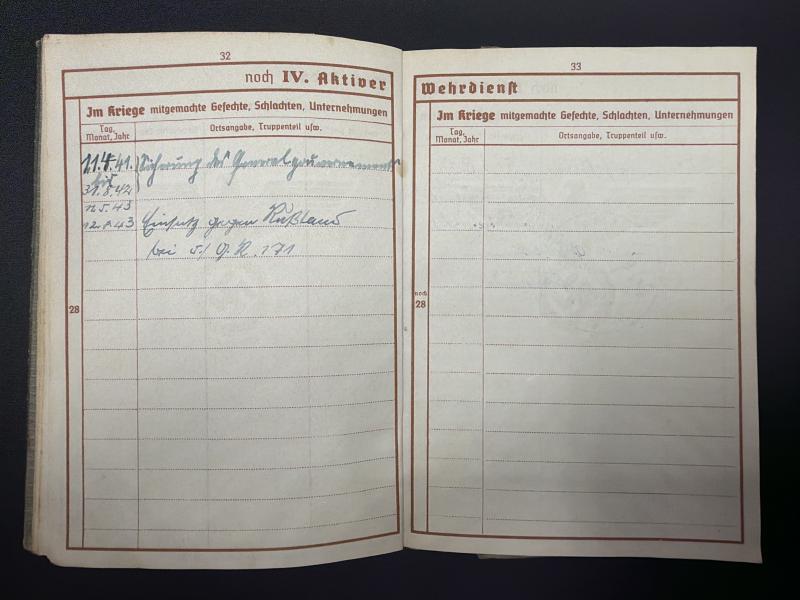 32
noch IV. Aktiver
Im Kriege mitgemachte Gefechte, Schlachten, Unternehmungen
Tag, Monat, Jahr
Ortsangabe, Truppenteil usw.
41. Sicherung des Generalgouvernements
bis
31.8.42
43
12. 43 Einsatz gegen Rußland
bei 171
28
33
Wehrdienst
Im Kriege mitgemachte Gefechte, Schlachten, Unternehmungen
Tag, Monat, Jahr
Ortsangabe, Truppenteil usw.
noch
28